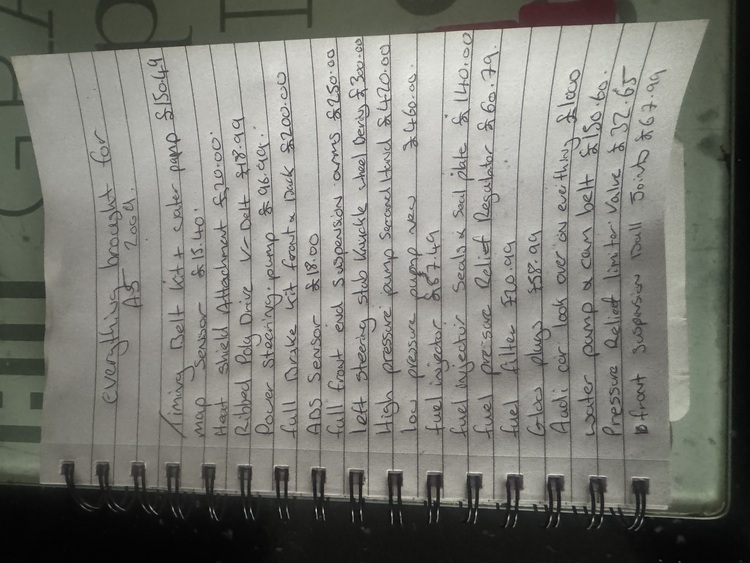 everything brought for
A5 2009.
Timing Belt kit + water pump £150.49
map Sensor £15.40.
Heat Shield Attachment £20.00.
Ribbed Poly Drive V-Belt £18.99
Power Steering pump £96.99.
full Brake kit front & Back £200.00
ABS Sensor £18.00
full front end Suspension arms £250.00
left steering stub knuckle wheel Bering £300.00
High pressure pump Second Hand £420.00
low pressure pump new £460.00.
fuel injector £87.49
fuel injector Seals & Seal plate £140.00
fuel pressure Relief Regulator £60.79.
fuel filter £20.99
Glow plugs £58.99
Audi car look over on everything £1000
water pump & cam belt £150.60.
Pressure Relief limiter Valve £32.65
front Suspension Ball Joints £67.99